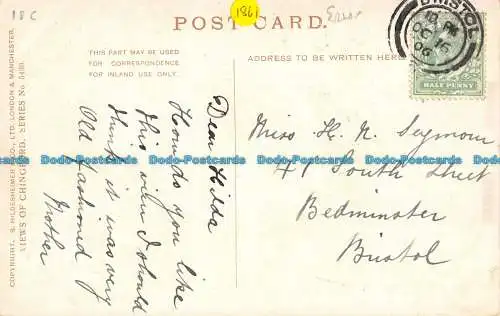 18 C
POST CARD.
186
Error
THIS PART MAY BE USED
FOR CORRESPONDENCE
FOR INLAND USE ONLY.
ADDRESS TO BE WRITTEN HERE
BRISTOL
OC 16
06
HALF PENNY
COPYRIGHT, S. HILDESHEIMER & CO., LTD. LONDON & MANCHESTER.
VIEWS OF CHINGFORD. SERIES No 5430.
Dear Hilda
How do you like
this view I should
think it was very
Old fashioned
Mother
Miss H. N. Seymour
41 South Street
Bedminster
Bristol
Dodo-Postcards Dodo-Postcards Dodo-Postcards Dodo-Postcards Dodo-Postcards Dodo-Postcards